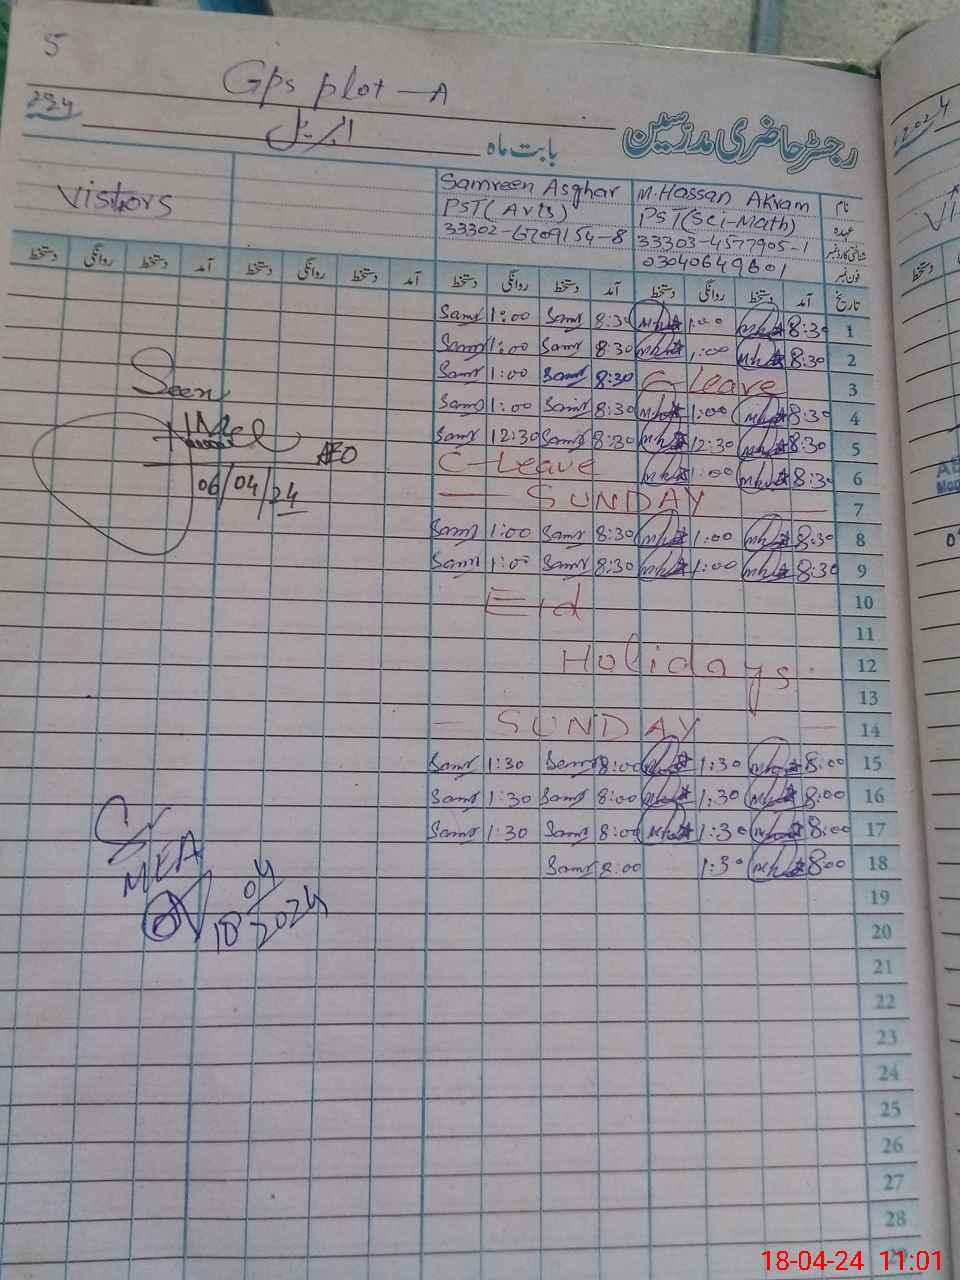 5
Gps plot - A
رجسٹر حاضری مدرسین
بابت ماہ اپریل
Visitors
Samreen Asghar M. Hassan Akram نام
PST (Arts) PST (Sci-Math) عہدہ
33302-6709154-8 33303-4577905-1 شناختی کارڈ نمبر
03040649601 فون نمبر
دستخط روانگی دستخط آمد دستخط روانگی دستخط آمد دستخط روانگی دستخط آمد دستخط روانگی دستخط آمد تاریخ
Samr 1:00 Samr 8:30 1:00 8:30 1
Samr 1:00 Samr 8:30 1:00 8:30 2
Samr 1:00 Samr 8:30 C-Leave 3
Samr 1:00 Samr 8:30 1:00 8:30 4
Samr 12:30 Samr 8:30 12:30 8:30 5
C-Leave 1:00 8:30 6
— SUNDAY — 7
Samr 1:00 Samr 8:30 1:00 8:30 8
Samr 1:00 Samr 8:30 1:00 8:30 9
Eid 10
11
Holidays. 12
13
— SUNDAY — 14
Samr 1:30 Samr 8:00 1:30 8:00 15
Samr 1:30 Samr 8:00 1:30 8:00 16
Samr 1:30 Samr 8:00 1:30 8:00 17
Samr 8:00 1:30 8:00 18
19
20
21
22
23
24
25
26
27
28
Seen
AEO
06/04/24
MEA
18 04/2024
18-04-24 11:01